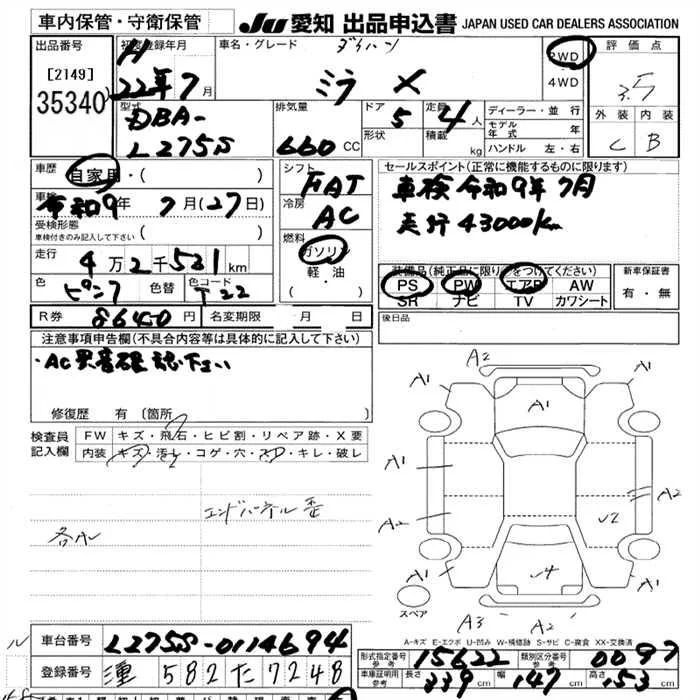 車内保管・守衛保管 JU 愛知 出品申込書 JAPAN USED CAR DEALERS ASSOCIATION
出品番号 初度登録年月 車名・グレード ダイハツ 2WD 評価点
[2149] H 4WD 3.5
35340 22年7月 ミラ X 外装 内装
型式 排気量 ドア 5 定員 4人 ディーラー・並行 C B
DBA- 形状 積載 kg モデル年式 年
L275S 660 CC ハンドル 左・右
車歴 自家用・( ) シフト FAT セールスポイント(正常に機能するものに限ります)
車検 令和9年7月(27日) 冷房 AC 車検令和9年7月
受検形態 車検付きのみ記入して下さい ( ) 燃料 走行43000km
走行 4万2千531km ガソリン 装備品(純正品に限り○をつけてください) 新車保証書
色 ピンク 色替 色コード T22 軽・油 PS PW エアB AW 有・無
( ) SR ナビ TV カワシート
R券 8640円 名変期限 月 日 後日品
注意事項申告欄(不具合内容等は具体的に記入して下さい)
・AC異音確認下さい
修復歴 有 〔箇所
検査員記入欄 FW キズ・飛石・ヒビ割・リペア跡・X要
内装 キズ・汚レ・コゲ・穴・スレ・キレ・破レ
各AU
A2
A1 A1
A1
A1 A1
A2 A2
U2
A1 U4 A1
スペア A3 A2
A-キズ E-エクボ U-凹み W-補修跡 S-サビ C-腐食 XX-交換済
車台番号 L275S-0114694 形式指定番号 参考 15622 類別区分番号 参考 0097
登録番号 582 た 7248 車庫証明用 参考 長さ 339cm 幅 147cm 高さ 153cm